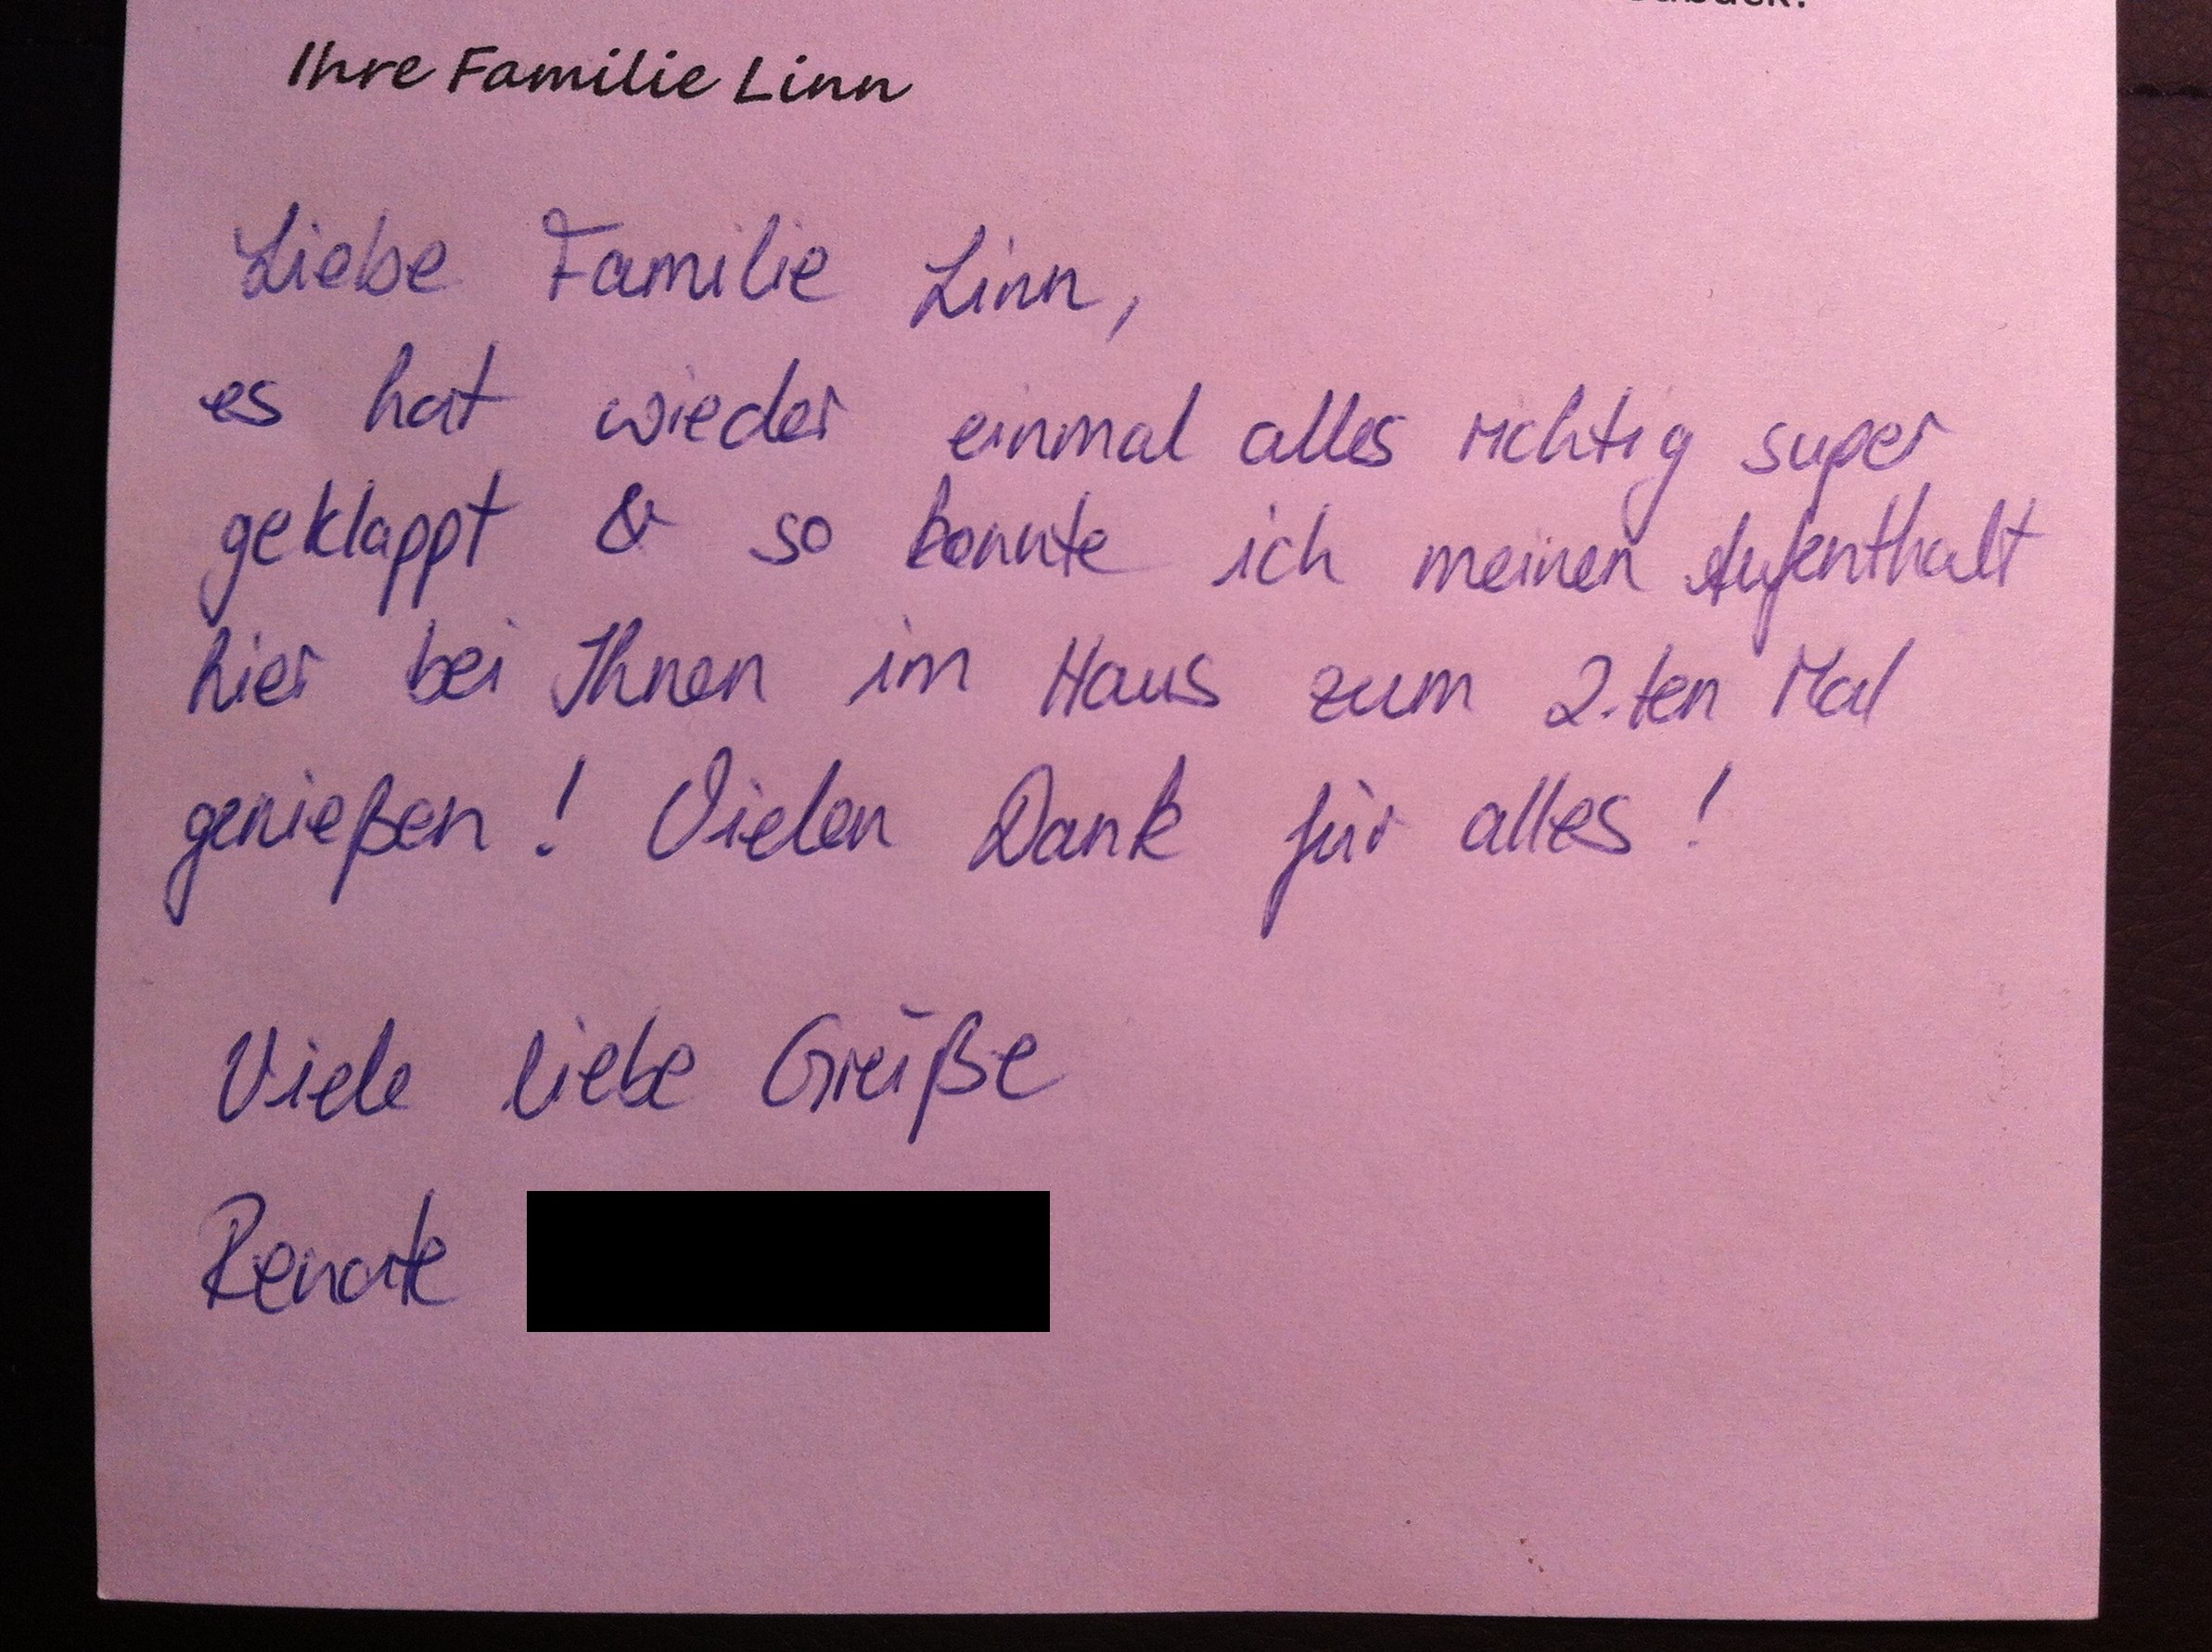 Ihre Familie Linn
Liebe Familie Linn,
es hat wieder einmal alles richtig super
geklappt & so konnte ich meinen Aufenthalt
hier bei Ihnen im Haus zum 2.ten Mal
genießen! Vielen Dank für alles!
Viele liebe Grüße
Renate